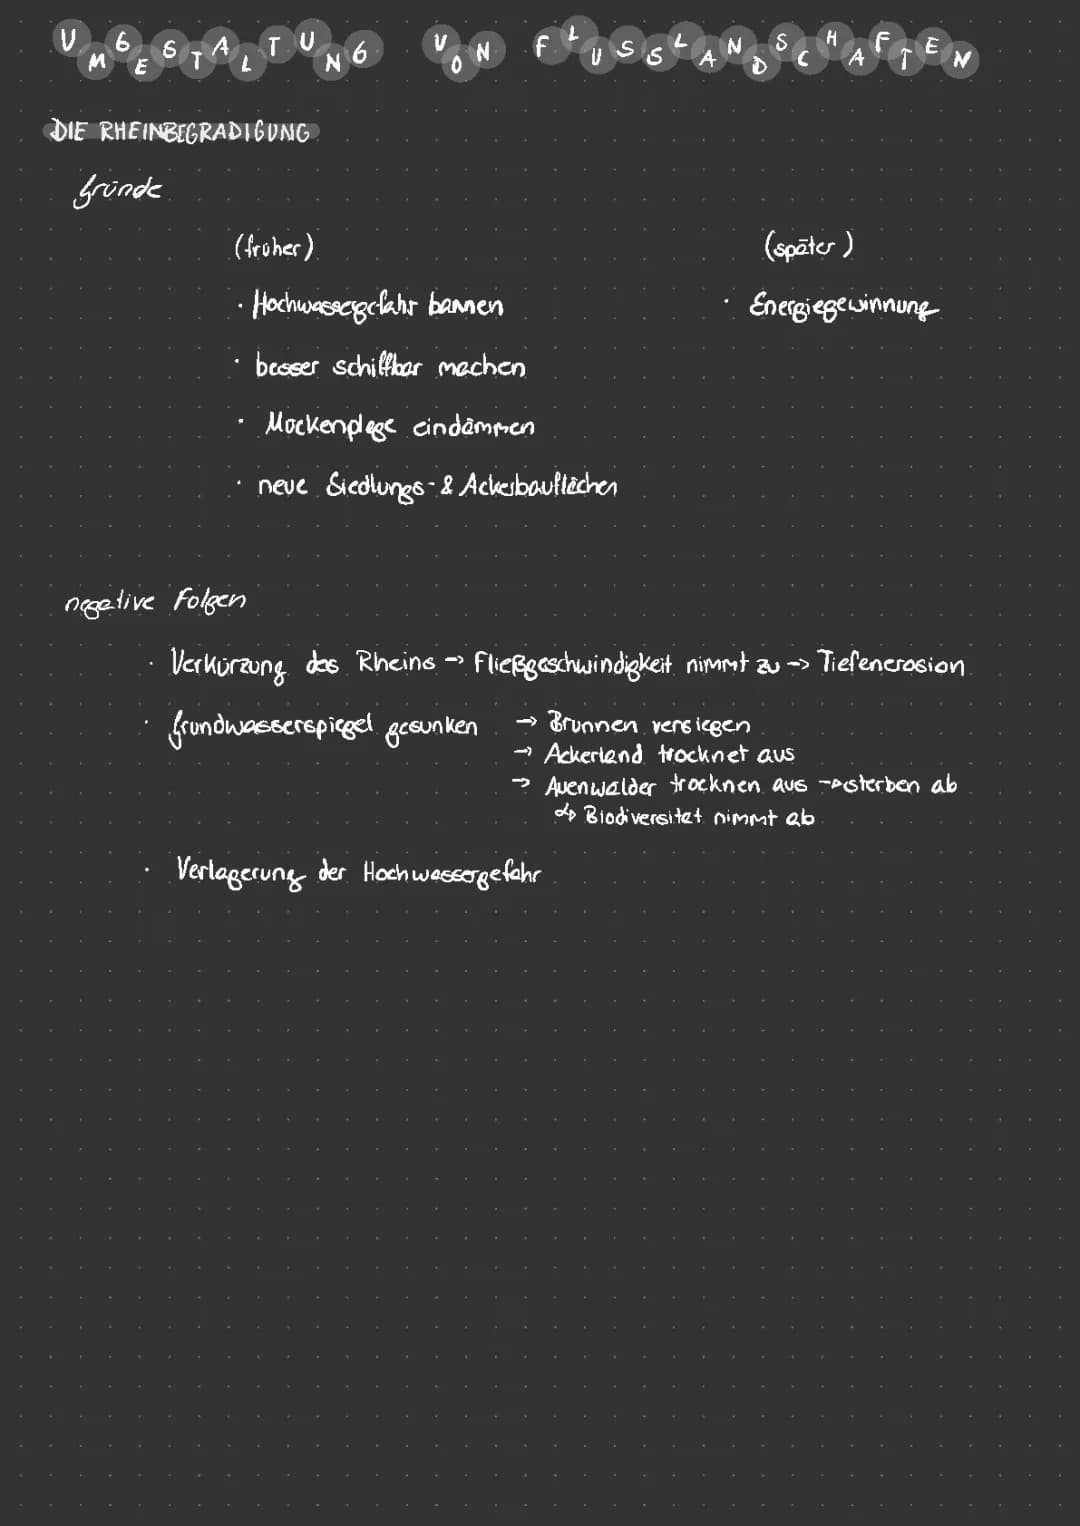 UMGESTALTUNG VON FLUSSLANDSCHAFTEN
DIE RHEINBEGRADIGUNG
Gründe
(früher) (später)
· Hochwassergefahr bannen · Energiegewinnung
· besser schiffbar machen
· Mückenplage eindämmen
· neue Siedlungs- & Ackerbauflächen
negative Folgen
· Verkürzung des Rheins → Fließgeschwindigkeit nimmt zu → Tiefenerosion
· Grundwasserspiegel gesunken → Brunnen versiegen
→ Ackerland trocknet aus
→ Auenwälder trocknen aus → sterben ab
↳ Biodiversität nimmt ab
· Verlagerung der Hochwassergefahr